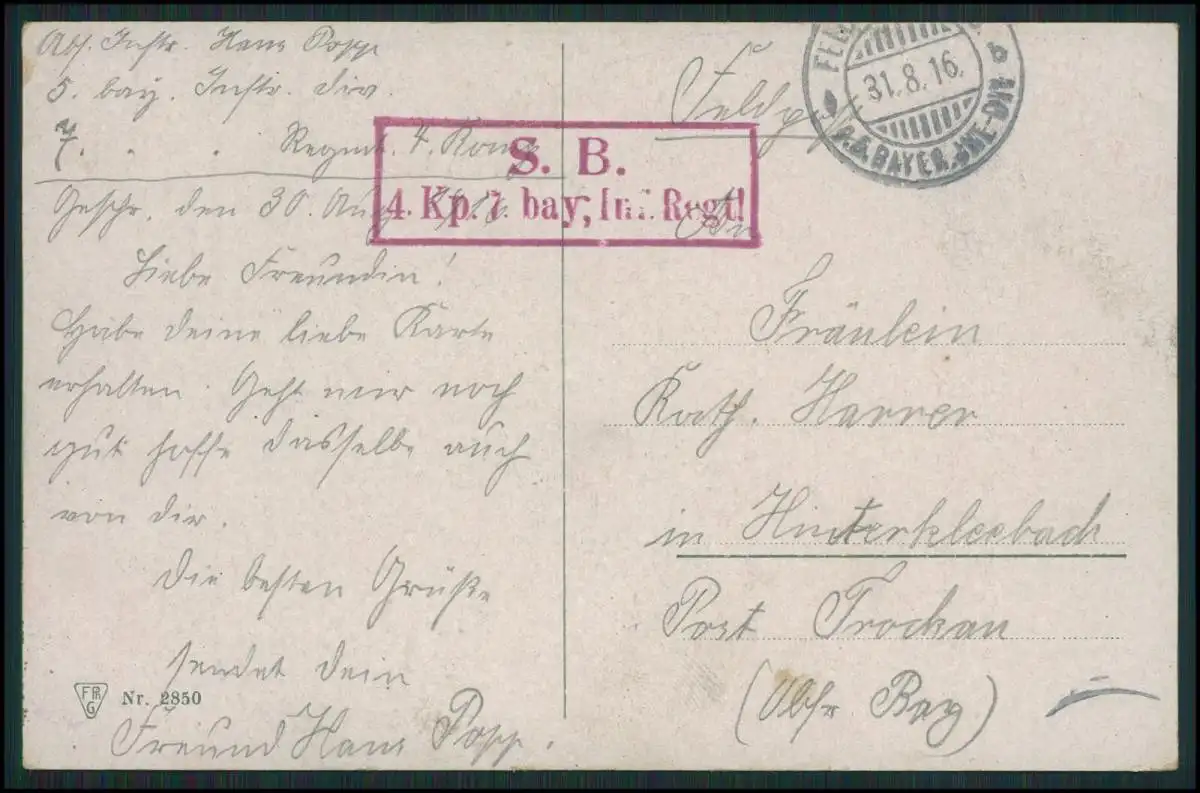 Abs. Inftr. Hans Popp
5. bay. Inftr. div.
7. " " Regmt. 4. Komp
Geschr. den 30. Aug. 1916.
Liebe Freundin!
Habe deine liebe Karte
erhalten. Geht mir noch
gut hoffe dasselbe auch
von dir.
Die besten Grüße
sendet dein
Freund Hans Popp.
FRG
Nr. 2850
S. B.
4. Kp. 7. bay. Inf. Regt!
Feldpost
31.8.16.
BAYER. INF.-DIV.
b
An
Fräulein
Kath. Harrer
in Hinterkleebach
Post Trockau
(Obfr Bay)